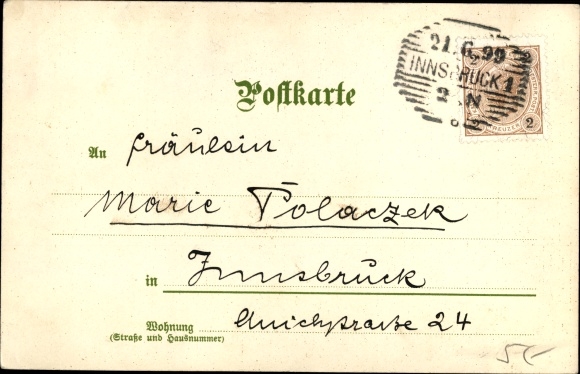 21.6.99
INNSBRUCK 1
2. N
KREUZER 2
Postkarte
An Fräulein
Marie Polaczek
in Innsbruck
Wohnung Anichstrasse 24
(Straße und Hausnummer)
5,-